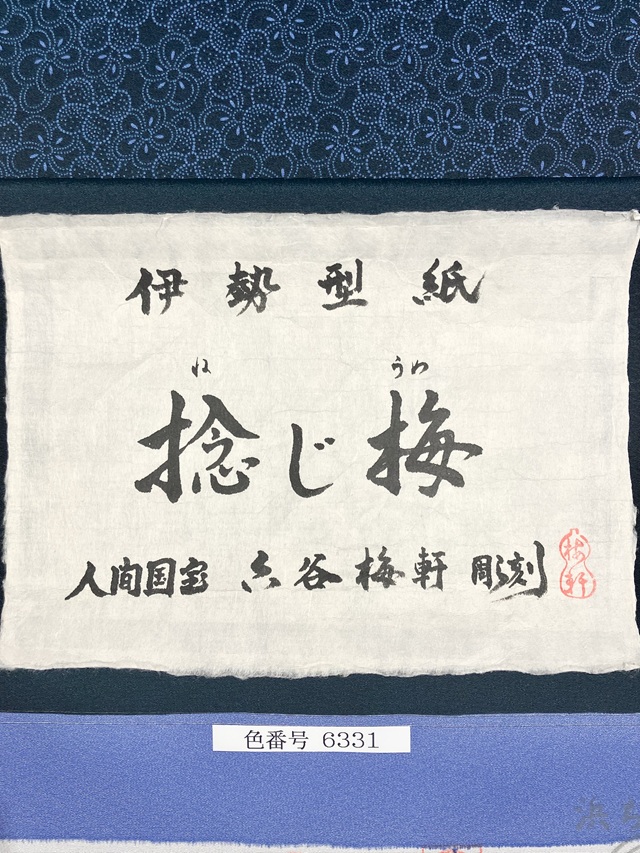 伊勢型紙
ね うめ
捻じ梅
人間国宝 六谷梅軒 彫刻
梅軒
色番号 6331